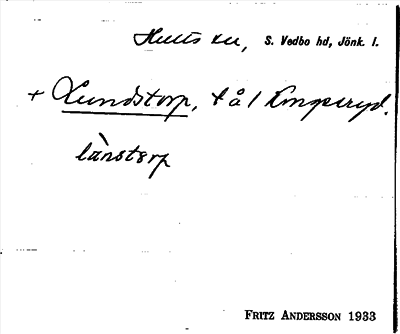 Hults sn, S. Vedbo hd, Jönk. l.
+ Lundstorp, t å / Kongseryd.
lànstɛrp
FRITZ ANDERSSON 1933